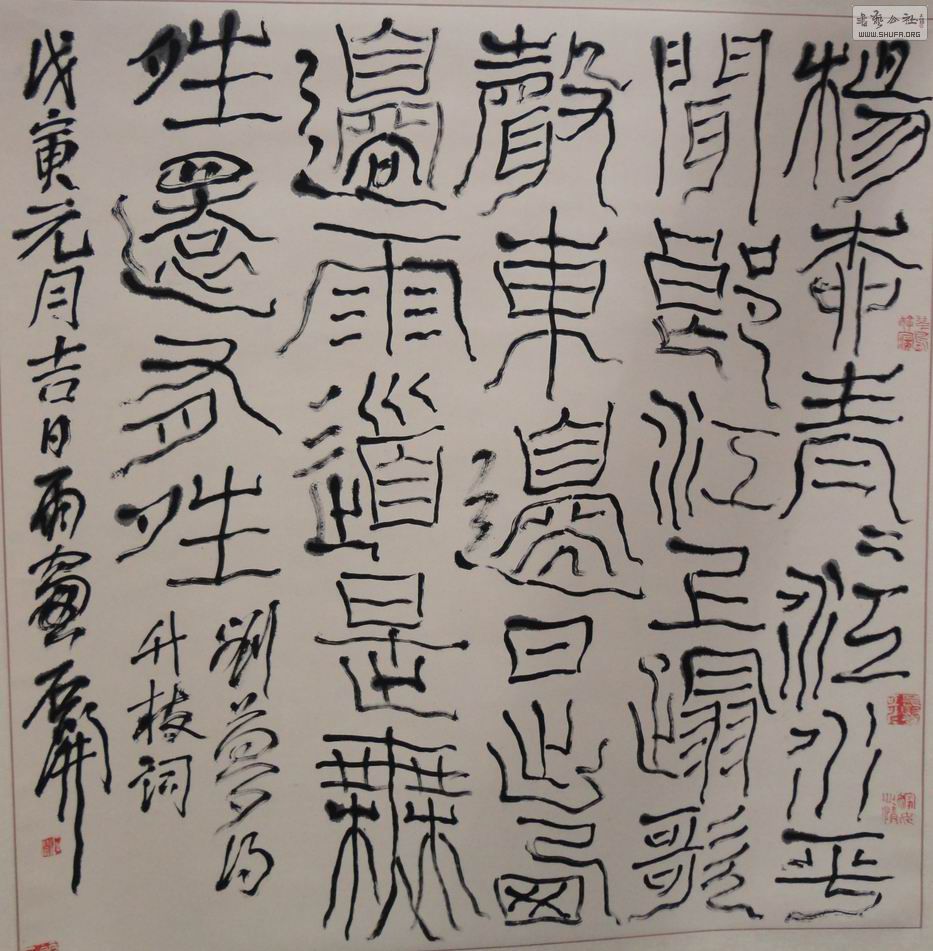 楊柳青〻江水平
聞郎江上蹋歌
聲東邊日出西
邊雨道是無
夝還有夝
劉夢得
竹枝詞
戊寅元月吉日雨窗石開
書法公社
WWW.SHUFA.ORG